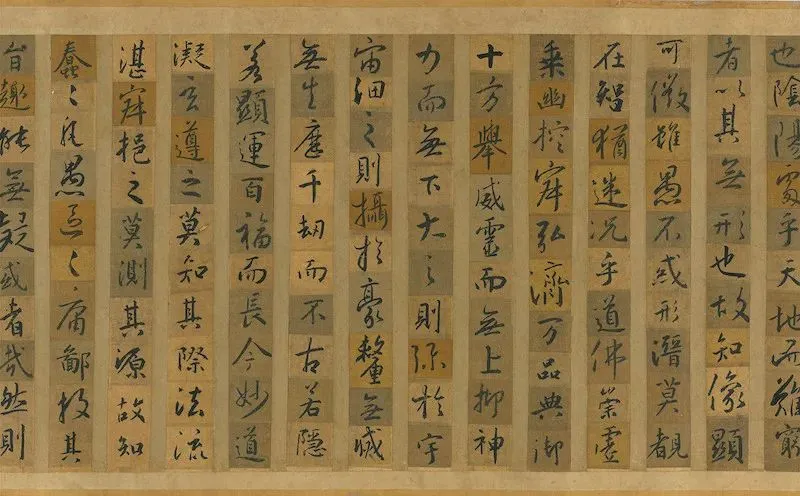 也陰陽處乎天地而難窮
者以其無形也故知像顯
可徵雖愚不惑形潛莫覩
在智猶迷況乎道佛崇虛
乘幽控寂弘濟万品典御
十方舉威靈而無上抑神
力而無下大之則弥於宇
宙細之則攝於豪釐無滅
無生歷千劫而不古若隱
若顯運百福而長今妙道
凝玄遵之莫知其際法流
湛寂挹之莫測其源故知
蠢〻凡愚區〻庸鄙投其
旨趣能無疑惑者哉然則